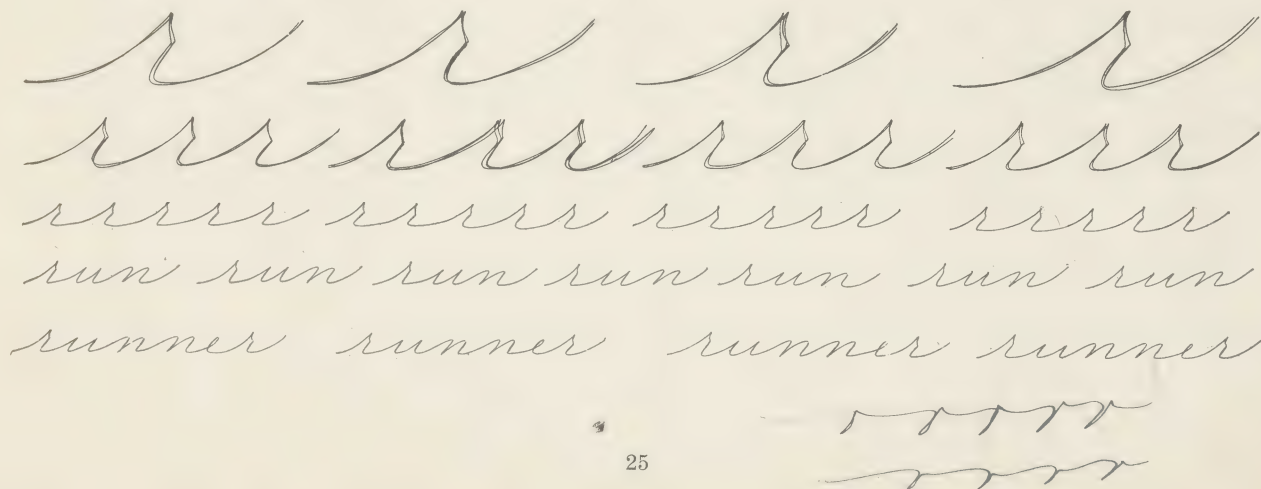 r r r r
rrr rrr rrr rrr
rrrrr rrrrr rrrrr rrrrr
run run run run run run run
runner runner runner runner
25